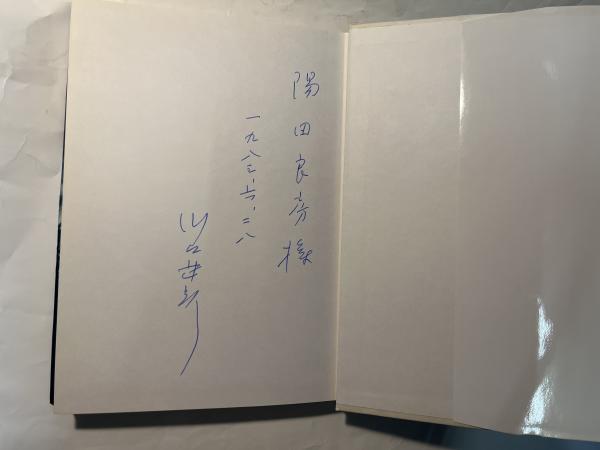 陽田良房様
一九八三・六・二八
山口